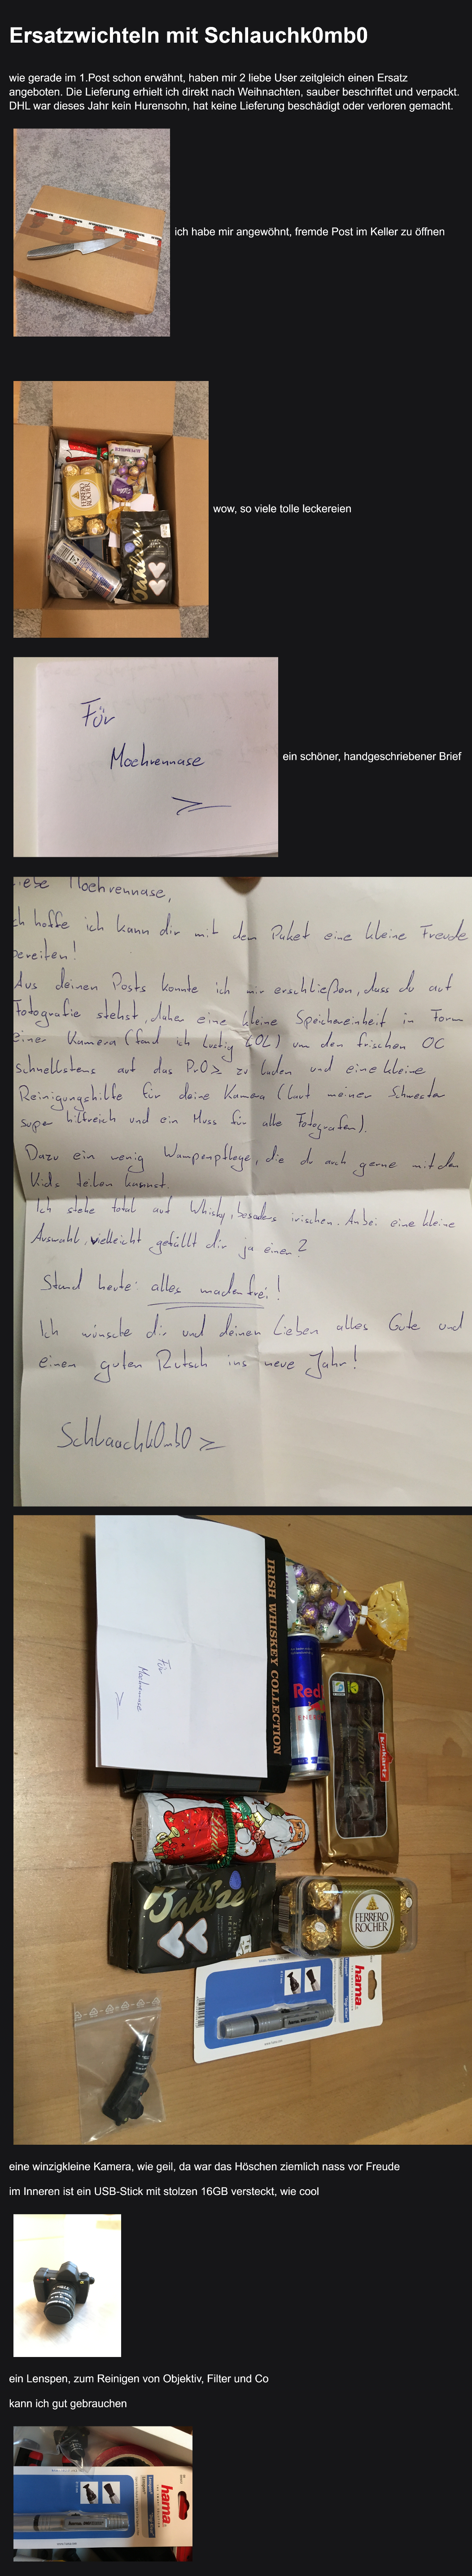 Ersatzwichteln mit Schlauchk0mb0
wie gerade im 1.Post schon erwähnt, haben mir 2 liebe User zeitgleich einen Ersatz
angeboten. Die Lieferung erhielt ich direkt nach Weihnachten, sauber beschriftet und verpackt.
DHL war dieses Jahr kein Hurensohn, hat keine Lieferung beschädigt oder verloren gemacht.
ich habe mir angewöhnt, fremde Post im Keller zu öffnen
FERRERO
ROCHER
Bahlsen
wow, so viele tolle leckereien
Für
Moehrennase
ein schöner, handgeschriebener Brief
iebe Moehrennase,
ch hoffe ich kann dir mit dem Paket eine kleine Freude
bereiten!
Aus deinen Posts konnte ich mir erschließen, dass du auf
Fotografie stehst, daher eine kleine Speichereinheit in Form
einer Kamera (fand ich lustig LOL) um den frischen OC
schnellstens auf das Pr0> zu laden und eine kleine
Reinigungshilfe für deine Kamera (laut meiner Schwester
super hilfreich und ein Muss für alle Fotografen).
Dazu ein wenig Wampenpflege, die du auch gerne mit den
Kids teilen kannst.
Ich stehe total auf Whisky, besonders irischen. Anbei eine kleine
Auswahl, vielleicht gefällt dir ja einer?
Stand heute: alles madenfrei!
Ich wünsche dir und deinen Lieben alles Gute und
einen guten Rutsch ins neue Jahr!
Schlauchk0mb0 >
IRISH WHISKEY COLLECTION
Für
Moehrennase
Red
ENER
Kinkartz
Bahlsen
ZIMT
HERZEN
FERRERO
ROCHER
hama
eine winzigkleine Kamera, wie geil, da war das Höschen ziemlich nass vor Freude
im Inneren ist ein USB-Stick mit stolzen 16GB versteckt, wie cool
ein Lenspen, zum Reinigen von Objektiv, Filter und Co
kann ich gut gebrauchen
hama